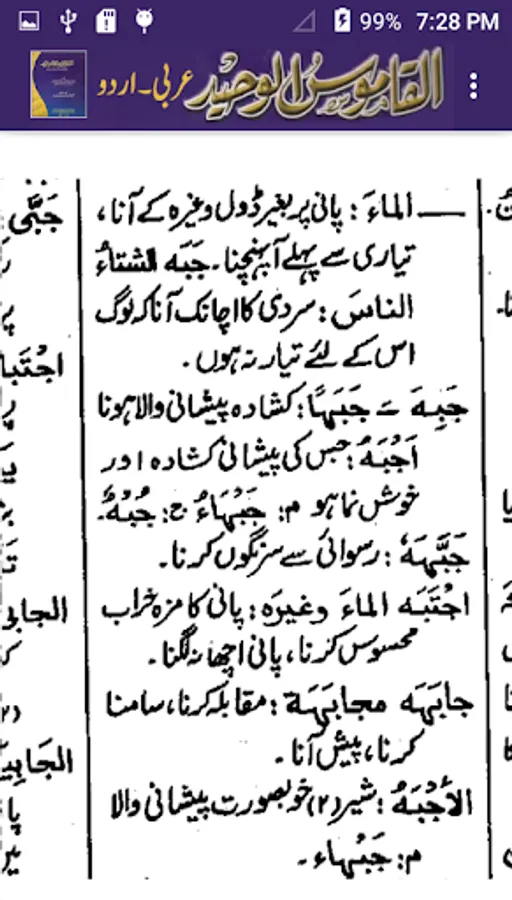 99% 7:28 PM
القاموس الوحید عربی - اردو
— الماءَ : پانی پر بغیر ڈول وغیرہ کے آنا،
تیاری سے پہلے آپہنچنا۔ جَبَه الشتاءُ
الناسَ : سردی کا اچانک آنا کہ لوگ
اس کے لئے تیار نہ ہوں۔
جَبِهَ ـَ جَبَهًا : کشادہ پیشانی والا ہونا
أَجْبَهُ : جس کی پیشانی کشادہ اور
خوش نما ہو م : جَبْهَاءُ ج : جُبْهٌ۔
جَبَّهَهٗ : رسوائی سے سرنگوں کرنا۔
اجْتَبَه الماءَ وغیرَہ : پانی کا مزہ خراب
محسوس کرنا، پانی اچھا نہ لگنا۔
جابَهَه مجابَهَة : مقابلہ کرنا، سامنا
کرنا، پیش آنا۔
الأَجْبَهُ : شیر (۲) خوبصورت پیشانی والا
م : جَبْهاء۔
جَبَّى
اجْتَبا
الجابی
(۲)
الجَابِيَ